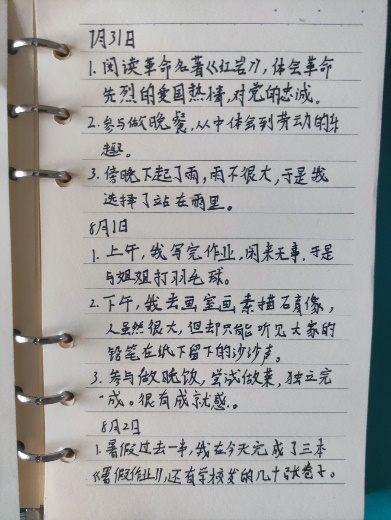 7月31日
1. 阅读革命名著《红岩》，体会革命
先烈的爱国热情，对党的忠诚。
2. 参与做晚餐，从中体会到劳动的乐
趣。
3. 傍晚下起了雨，雨不很大，于是我
选择了站在雨里。
8月1日
1. 上午，我写完作业，闲来无事，于是
与姐姐打羽毛球。
2. 下午，我去画室画素描石膏像，
人虽然很大，但却只能听见大家的
铅笔在纸下留下的沙沙声。
3. 参与做晚饭，尝试做菜，独立完
成。很有成就感。
8月2日
1. 暑假过去一半，我在今天完成了三本
《暑假作业》，还有学校发的几十张卷子。